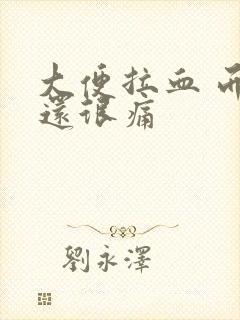 大便拉血 而
還很痛
劉永澤